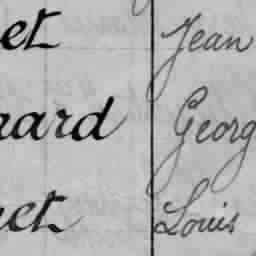 et Jean
ard Georg
et Louis